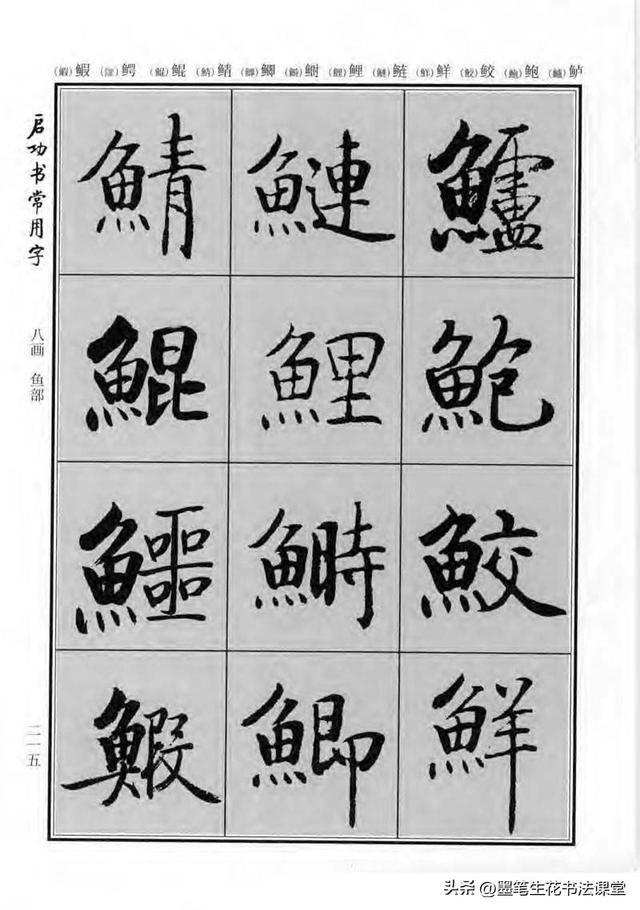 (鰕)鰕 (鱷)鳄 (鯤)鲲 (鯖)鲭 (鯽)鲫 (鰣)鲥 (鯉)鲤 (鰱)鲢 (鮮)鲜 (鮫)鲛 (鮑)鲍 (鱸)鲈
鱸
鮑
鮫
鮮
鰱
鯉
鰣
鯽
鯖
鯤
鱷
鰕
启功书常用字
八画 鱼部
二一五
头条 @墨笔生花书法课堂